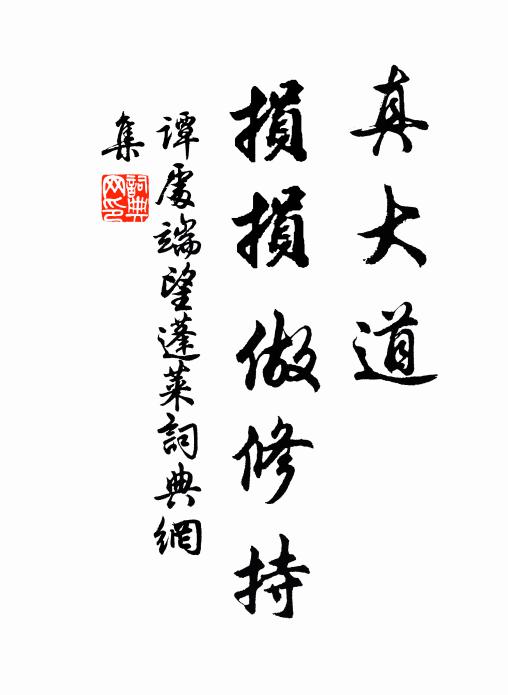 真大道
損損做修持
譚處端望蓬萊詞典網
集
詞典网印